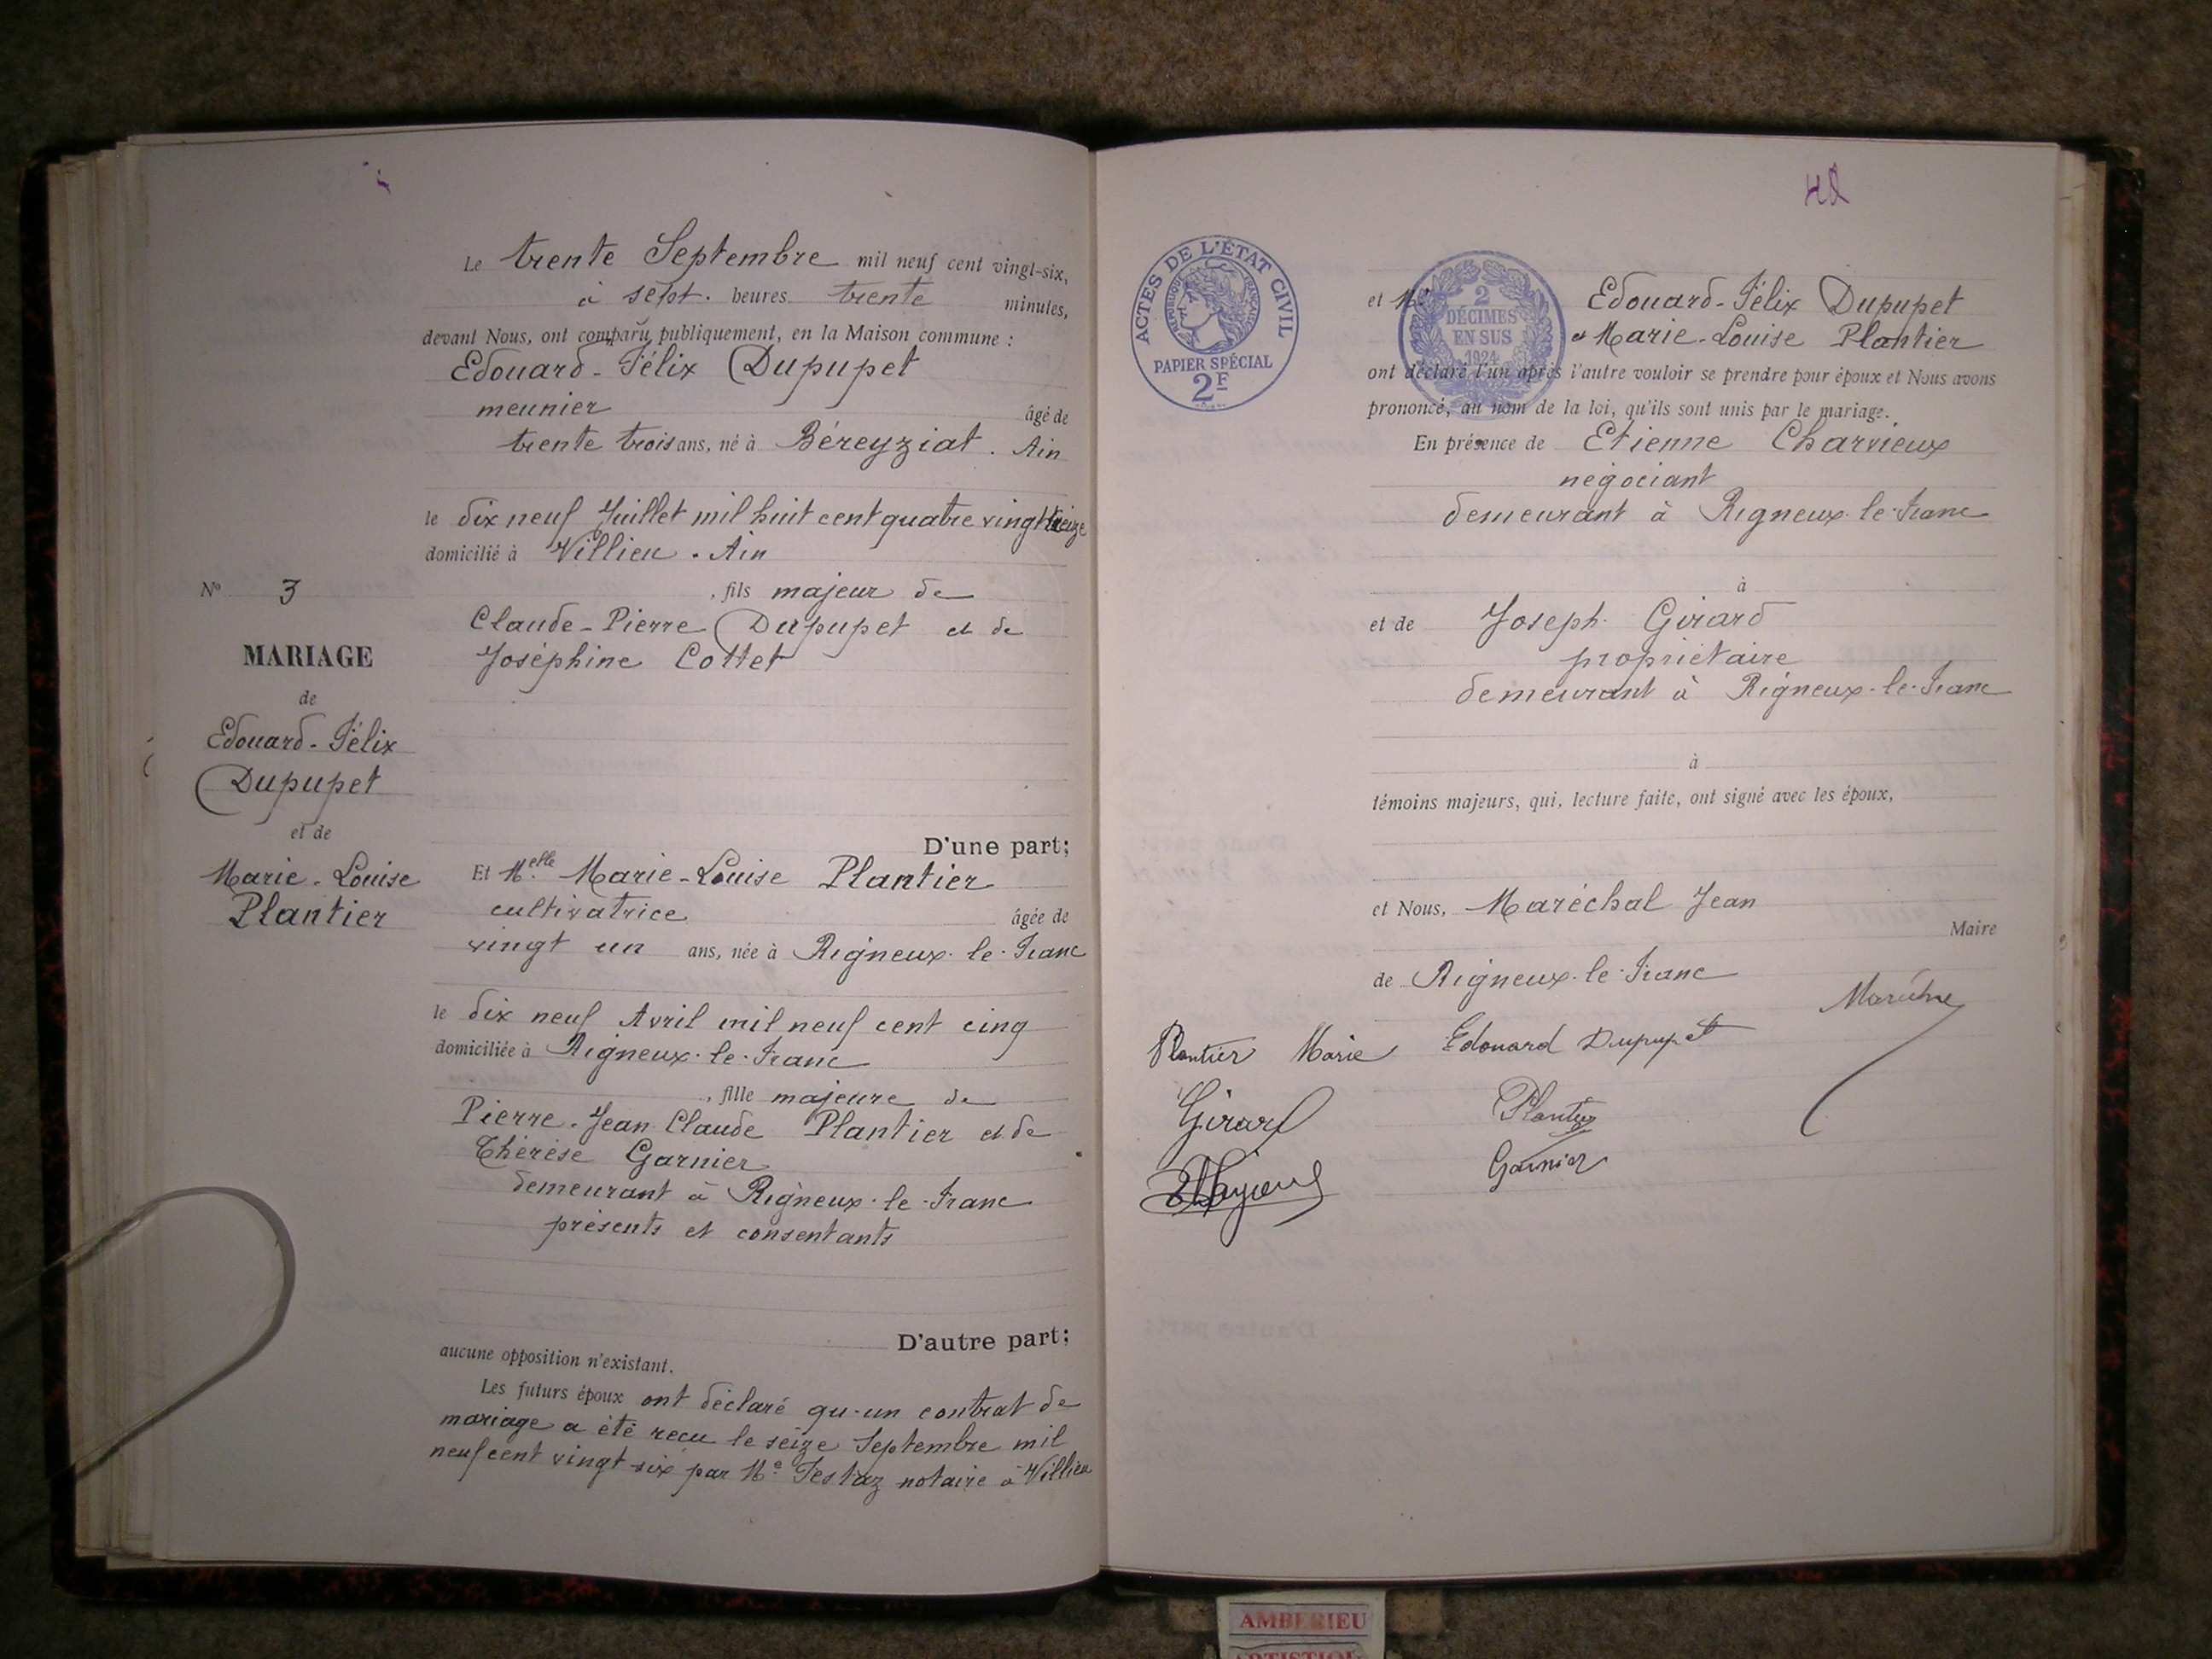 N° 3
MARIAGE
de
Edouard-Félix
Dupupet
et de
Marie-Louise
Plantier
Le trente Septembre mil neuf cent vingt-six,
à sept. heures trente minutes,
devant Nous, ont comparu publiquement, en la Maison commune :
Edouard-Félix Dupupet
meunier âgé de
trente trois ans, né à Béreyziat. Ain
le dix neuf Juillet mil huit cent quatre vingt treize
domicilié à Villieu. Ain
, fils majeur de
Claude-Pierre Dupupet et de
Joséphine Cottet
D'une part;
Et Melle Marie-Louise Plantier
cultivatrice âgée de
vingt un ans, née à Rigneux-le-Franc
le dix neuf Avril mil neuf cent cinq
domiciliée à Rigneux-le-Franc
, fille majeure de
Pierre-Jean Claude Plantier et de
Thérèse Garnier
demeurant à Rigneux-le-Franc
présents et consentants
D'autre part;
aucune opposition n'existant.
Les futurs époux ont déclaré qu'un contrat de
mariage a été reçu le seize Septembre mil
neuf cent vingt six par Me Testaz notaire à Villieu
42
ACTES DE L'ÉTAT CIVIL
RÉPUBLIQUE FRANÇAISE
PAPIER SPÉCIAL
2F
2
DÉCIMES
EN SUS
1924
et M. Edouard-Félix Dupupet
et Marie-Louise Plantier
ont déclaré l'un après l'autre vouloir se prendre pour époux et Nous avons
prononcé, au nom de la loi, qu'ils sont unis par le mariage.
En présence de Etienne Charvieux
négociant
demeurant à Rigneux-le-Franc
à
et de Joseph Girard
propriétaire
demeurant à Rigneux-le-Franc
à
témoins majeurs, qui, lecture faite, ont signé avec les époux,
et Nous, Maréchal Jean
Maire
de Rigneux-le-Franc
Plantier Marie Edouard Dupupet
Girard Plantier
Garnier
AMBERIEU